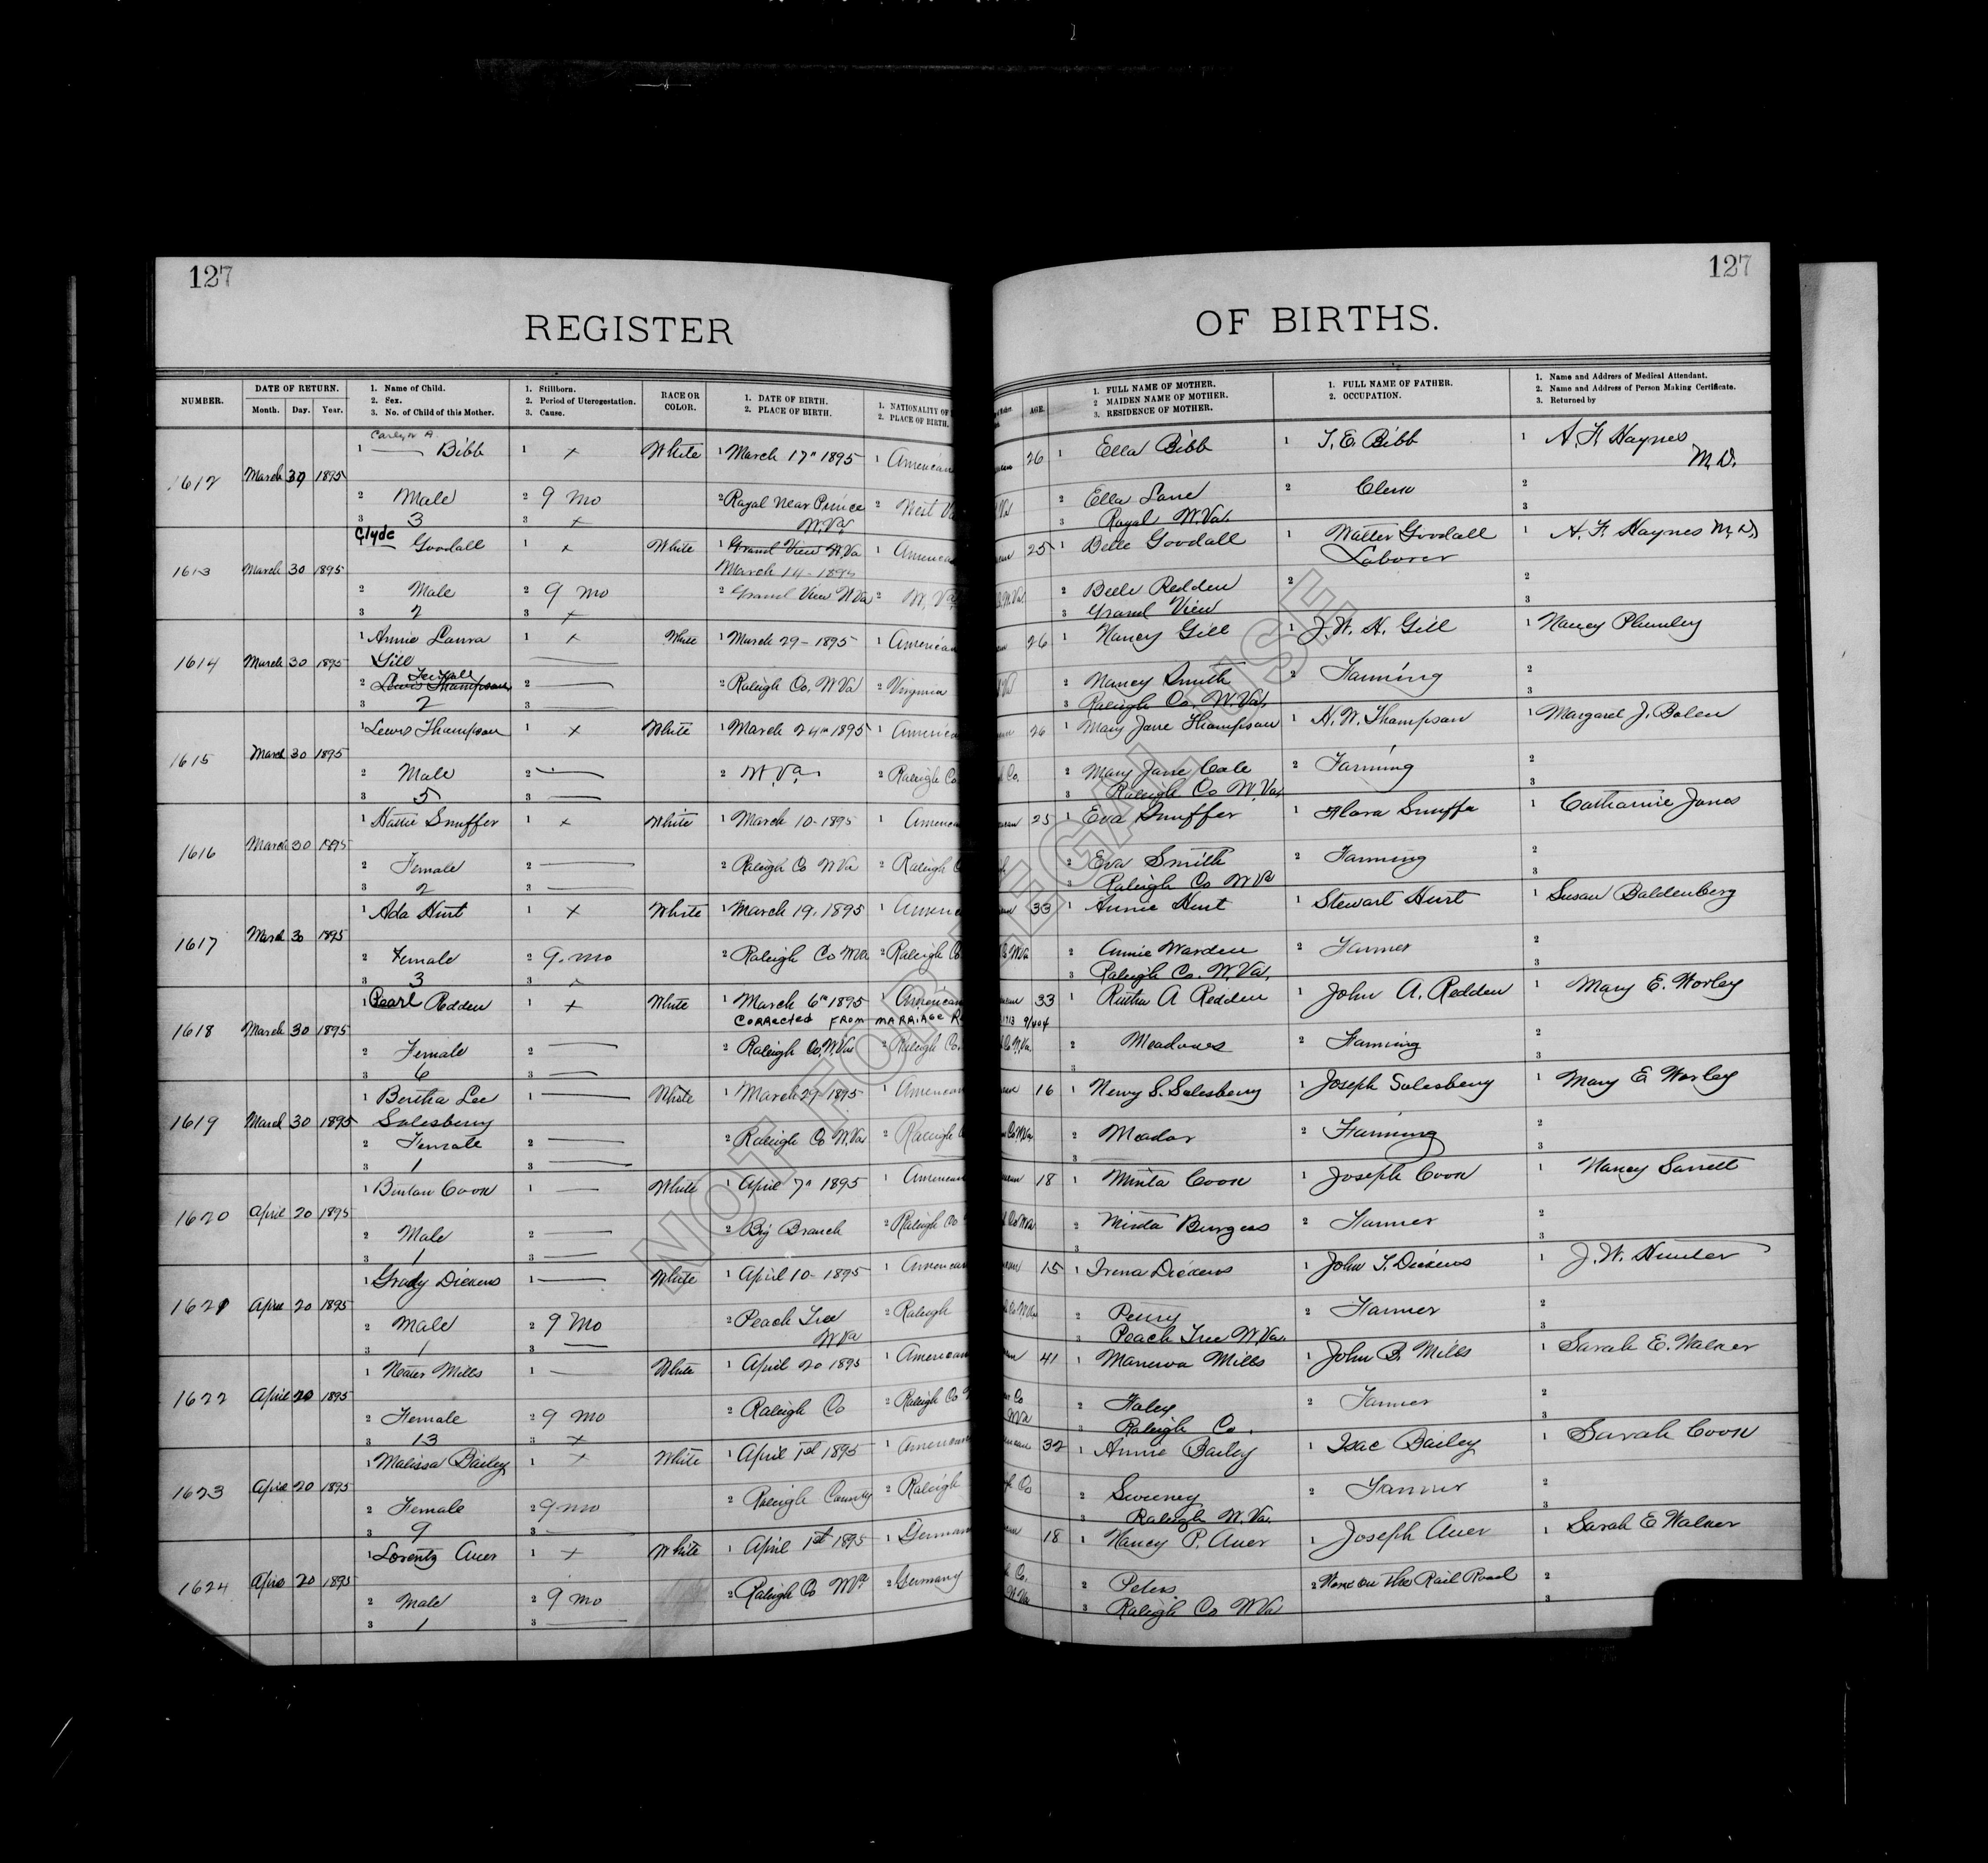 127
127
REGISTER
OF BIRTHS.
NUMBER.
DATE OF RETURN.
Month. Day. Year.
1. Name of Child.
2. Sex.
3. No. of Child of this Mother.
1. Stillborn.
2. Period of Uterogestation.
3. Cause.
RACE OR COLOR.
1. DATE OF BIRTH.
2. PLACE OF BIRTH.
1. NATIONALITY OF
2. PLACE OF BIRTH.
AGE.
1. FULL NAME OF MOTHER.
2 MAIDEN NAME OF MOTHER.
3. RESIDENCE OF MOTHER.
1. FULL NAME OF FATHER.
2. OCCUPATION.
1. Name and Address of Medical Attendant.
2. Name and Address of Person Making Certificate.
3. Returned by
1612 March 30 1895 1 Bibb 1 x White 1 March 17" 1895 1 American 26 1 Ella Bibb 1 T. E. Bibb 1 A. F. Haynes M.D.
2 Male 2 9 mo 2 Royal Near Prince W.Va. 2 West Va 2 Ella Lane 2 Clerk 2
3 3 3 x 3 Royal W.Va. 3
1613 March 30 1895 Clyde Goodall 1 x White 1 Grand View W.Va 1 America 25 1 Belle Goodall 1 Walter Goodall 1 A. F. Haynes M.D.
March 14 - 1895 Laborer
2 Male 2 9 mo 2 Grand View W Va 2 W. Va 2 Belle Redden 2 2
3 2 3 x 3 Grand View 3
1614 March 30 1895 1 Annie Laura Gill 1 x White 1 March 29 - 1895 1 American 26 1 Nancy Gill 1 J. W. H. Gill 1 Nancy Plumley
Female
2 Lewis Thompson 2 2 Raleigh Co. W Va 2 Virginia 2 Nancy Smith 2 Farming 2
3 2 3 3 Raleigh Co. W. Va. 3
1615 March 30 1895 1 Lewis Thompson 1 x White 1 March 24th 1895 1 America 26 1 Mary Jane Thompson 1 H. W. Thompson 1 Margaret J. Bolen
2 Male 2 2 W. Va. 2 Raleigh Co 2 Mary Jane Cale 2 Farming 2
3 5 3 3 Raleigh Co W. Va. 3
1616 March 30 1895 1 Hattie Snuffer 1 x White 1 March 10 - 1895 1 America 25 1 Eva Snuffer 1 Snuffer 1 Catharine Jones
2 Female 2 2 Raleigh Co W Va 2 Raleigh C 2 Eva Smith 2 Farming 2
3 2 3 3 Raleigh Co W Va 3
1617 March 30 1895 1 Ada Hurt 1 x White 1 March 19, 1895 1 America 33 1 Annie Hurt 1 Stewart Hurt 1 Susan Baldenberg
2 Female 2 9. mo 2 Raleigh Co W Va 2 Raleigh Co 2 Annie Warden 2 Farmer 2
3 3 3 x 3 Raleigh Co. W. Va. 3
1618 March 30 1895 1 Pearl Redden 1 x White 1 March 6th 1895 1 American 33 1 Rutha A Redden 1 John A. Redden 1 Mary E. Worley
CORRECTED FROM MARRIAGE R
2 Female 2 2 Raleigh Co. W. Va 2 Raleigh Co. 2 Meadows 2 Farming 2
3 6 3 3 3
1619 March 30 1895 1 Bertha Lee Salesberry 1 White 1 March 29 - 1895 1 American 16 1 Newy S. Salesberry 1 Joseph Salesberry 1 Mary E Worley
2 Female 2 2 Raleigh Co W. Va 2 Raleigh C 2 Meador 2 Farming 2
3 1 3 3 3
1620 April 20 1895 1 Coon 1 White 1 April 7th 1895 1 American 18 1 Minta Coon 1 Joseph Coon 1 Nancy Sarrett
2 Male 2 2 Big Branch 2 Raleigh Co 2 Minta Burgess 2 Farmer 2
3 1 3 3 3
1621 April 20 1895 1 Grady Dickens 1 White 1 April 10 - 1895 1 American 15 1 Irena Dickens 1 John T. Dickens 1 J. W. Hunter
2 Male 2 9 mo 2 Peach Tree W Va 2 Raleigh 2 Perry 2 Farmer 2
3 1 3 3 Peach Tree W. Va. 3
1622 April 20 1895 1 Mills 1 White 1 April 20 1895 1 American 41 1 Manerva Mills 1 John B. Mills 1 Sarah E. Walker
2 Female 2 9 mo 2 Raleigh Co 2 Raleigh Co 2 Haley 2 Farmer 2
3 13 3 x 3 Raleigh Co. 3
1623 April 20 1895 1 Malissa Bailey 1 x White 1 April 1st 1895 1 American 32 1 Annie Bailey 1 Isac Bailey 1 Sarah Coon
2 Female 2 9 mo 2 Raleigh County 2 Raleigh 2 Sweeney 2 Farmer 2
3 9 3 3 Raleigh W. Va. 3
1624 April 20 1895 1 Lorentz Auer 1 x White 1 April 1st 1895 1 German 18 1 Nancy P. Auer 1 Joseph Auer 1 Sarah E Walker
2 Male 2 9 mo 2 Raleigh Co W Va 2 Germany 2 Peters 2 Work on the Rail Road 2
3 1 3 3 Raleigh Co W Va 3
NOT FOR LEGAL USE